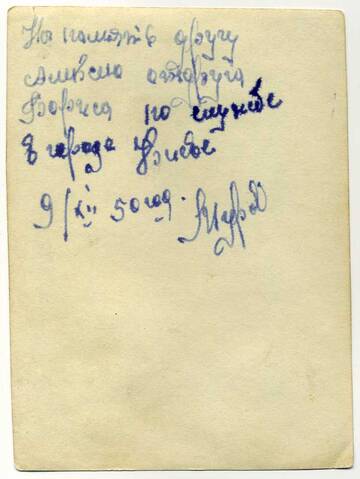 На память другу
Алексею от друга
Бориса по службе
в городе Киеве
9/XII 50 год.